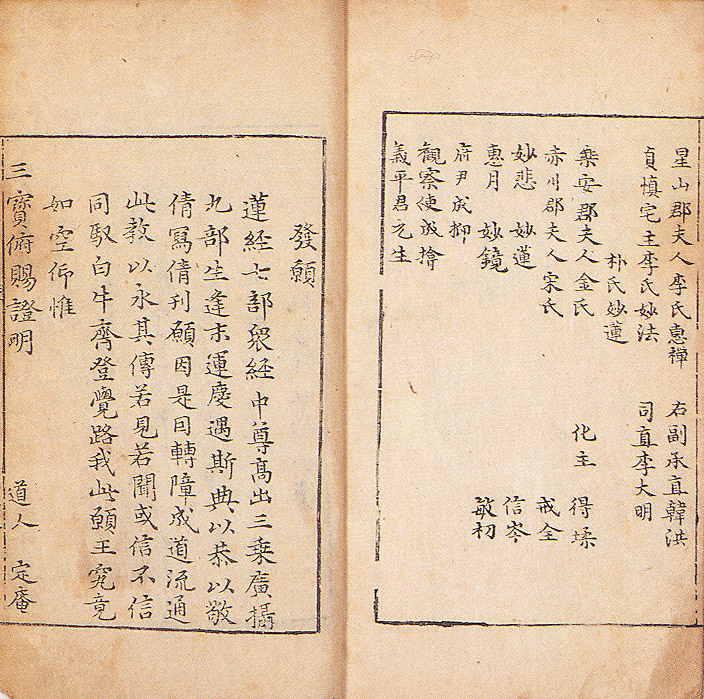 星山郡夫人李氏惠禪 右副承直韓洪
貞慎宅主李氏妙法 司直李大明
朴氏妙蓮
樂安郡夫人金氏 化主 得
赤川郡夫人宋氏 戒全
妙悲 妙蓮 信岑
惠月 妙鏡 敏初
府尹成抑
觀察使成揜
義平君元生
發願
蓮經七部衆經中尊高出三乘廣攝
九部生逢末運慶遇斯典以恭以敬
倩寫倩刊願因是同轉障成道流通
此教以永其傳若見若聞或信不信
同馭白牛齊登覺路我此願王究竟
如空仰惟
三寶俯賜證明 道人 定庵